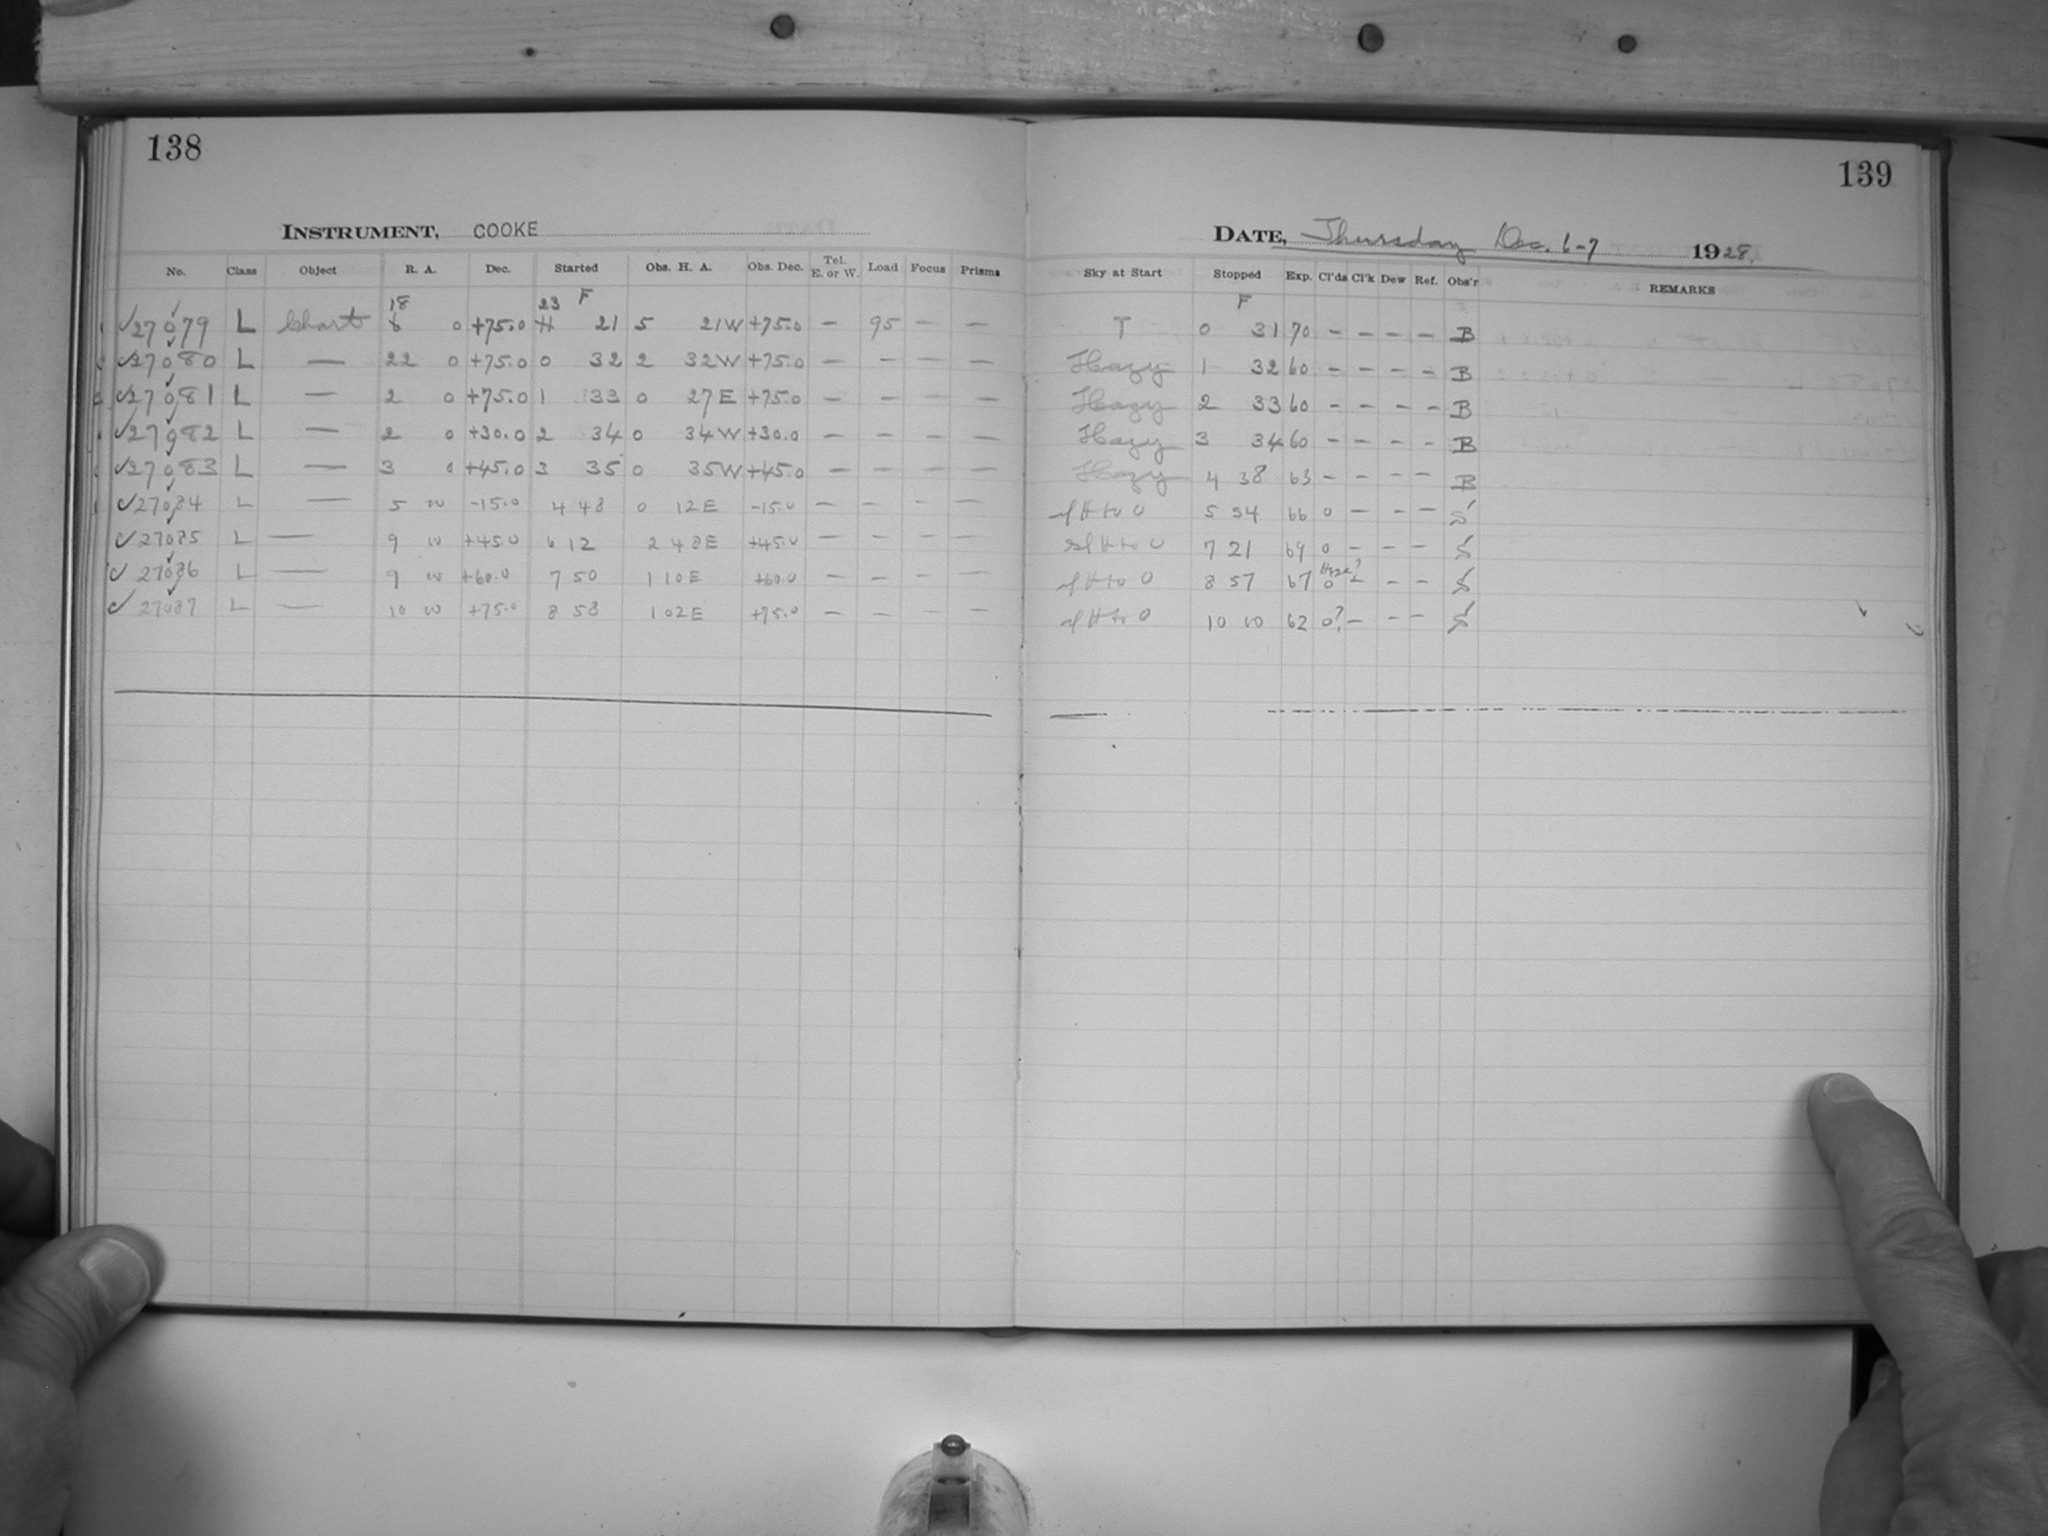 138
INSTRUMENT, COOKE
No. Class Object R. A. Dec. Started Obs. H. A. Obs. Dec. Tel. E. or W. Load Focus Prisms
18 23 F
✓27079 L Chart 6 0 +75.0 H 21 5 21W +75.0 — 95 — —
✓27080 L — 22 0 +75.0 0 32 2 32W +75.0 — — — —
✓27081 L — 2 0 +75.0 1 33 0 27E +75.0 — — — —
✓27082 L — 2 0 +30.0 2 34 0 34W +30.0 — — — —
✓27083 L — 3 0 +45.0 3 35 0 35W +45.0 — — — —
✓27084 L — 5 00 -15.0 4 48 0 12E -15.0 — — — —
✓27085 L — 9 00 +45.0 6 12 2 48E +45.0 — — — —
✓27086 L — 9 00 +60.0 7 50 1 10E +60.0 — — — —
✓27087 L — 10 00 +75.0 8 58 1 02E +75.0 — — — —
139
DATE, Thursday Dec. 6-7 1928.
Sky at Start Stopped Exp. Cl'ds Cl'k Dew Ref. Obs'r REMARKS
F
T 0 31 70 — — — — B
Hazy 1 32 60 — — — — B
Hazy 2 33 60 — — — — B
Hazy 3 34 60 — — — — B
Hazy 4 38 63 — — — — B
sl H to 0 5 54 66 0 — — — S
sl H to 0 7 21 69 0 — — — S
Haze?
sl H to 0 8 57 67 0 — — — S
sl H to 0 10 00 62 0? — — — S